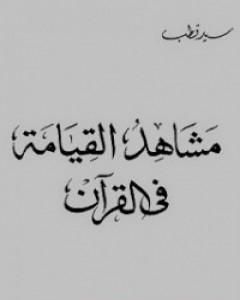 سيد قطب
مَشَاهِدُ القِيَامَة
فى القرآن